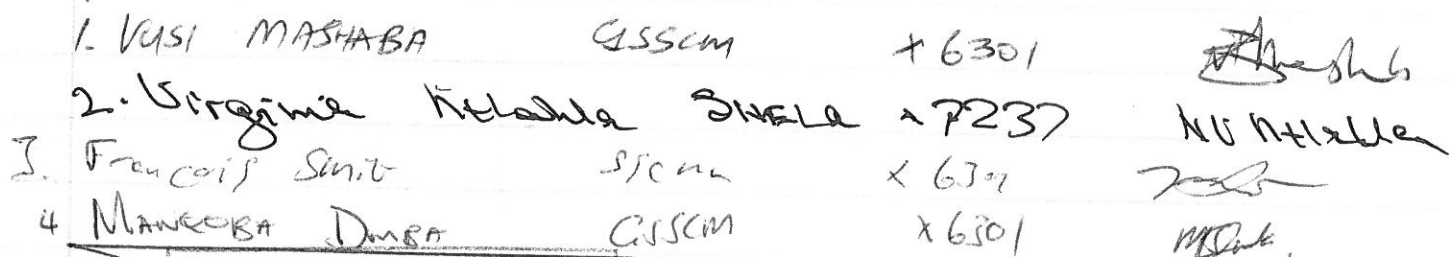 1. VUSI MASHABA GSSCM x6301
2. Virginia Ntlahla SHELA x7237 NV Ntlahla
3. Francois Smit x 6301
4 MANQOBA DUBA GSSCM x6301